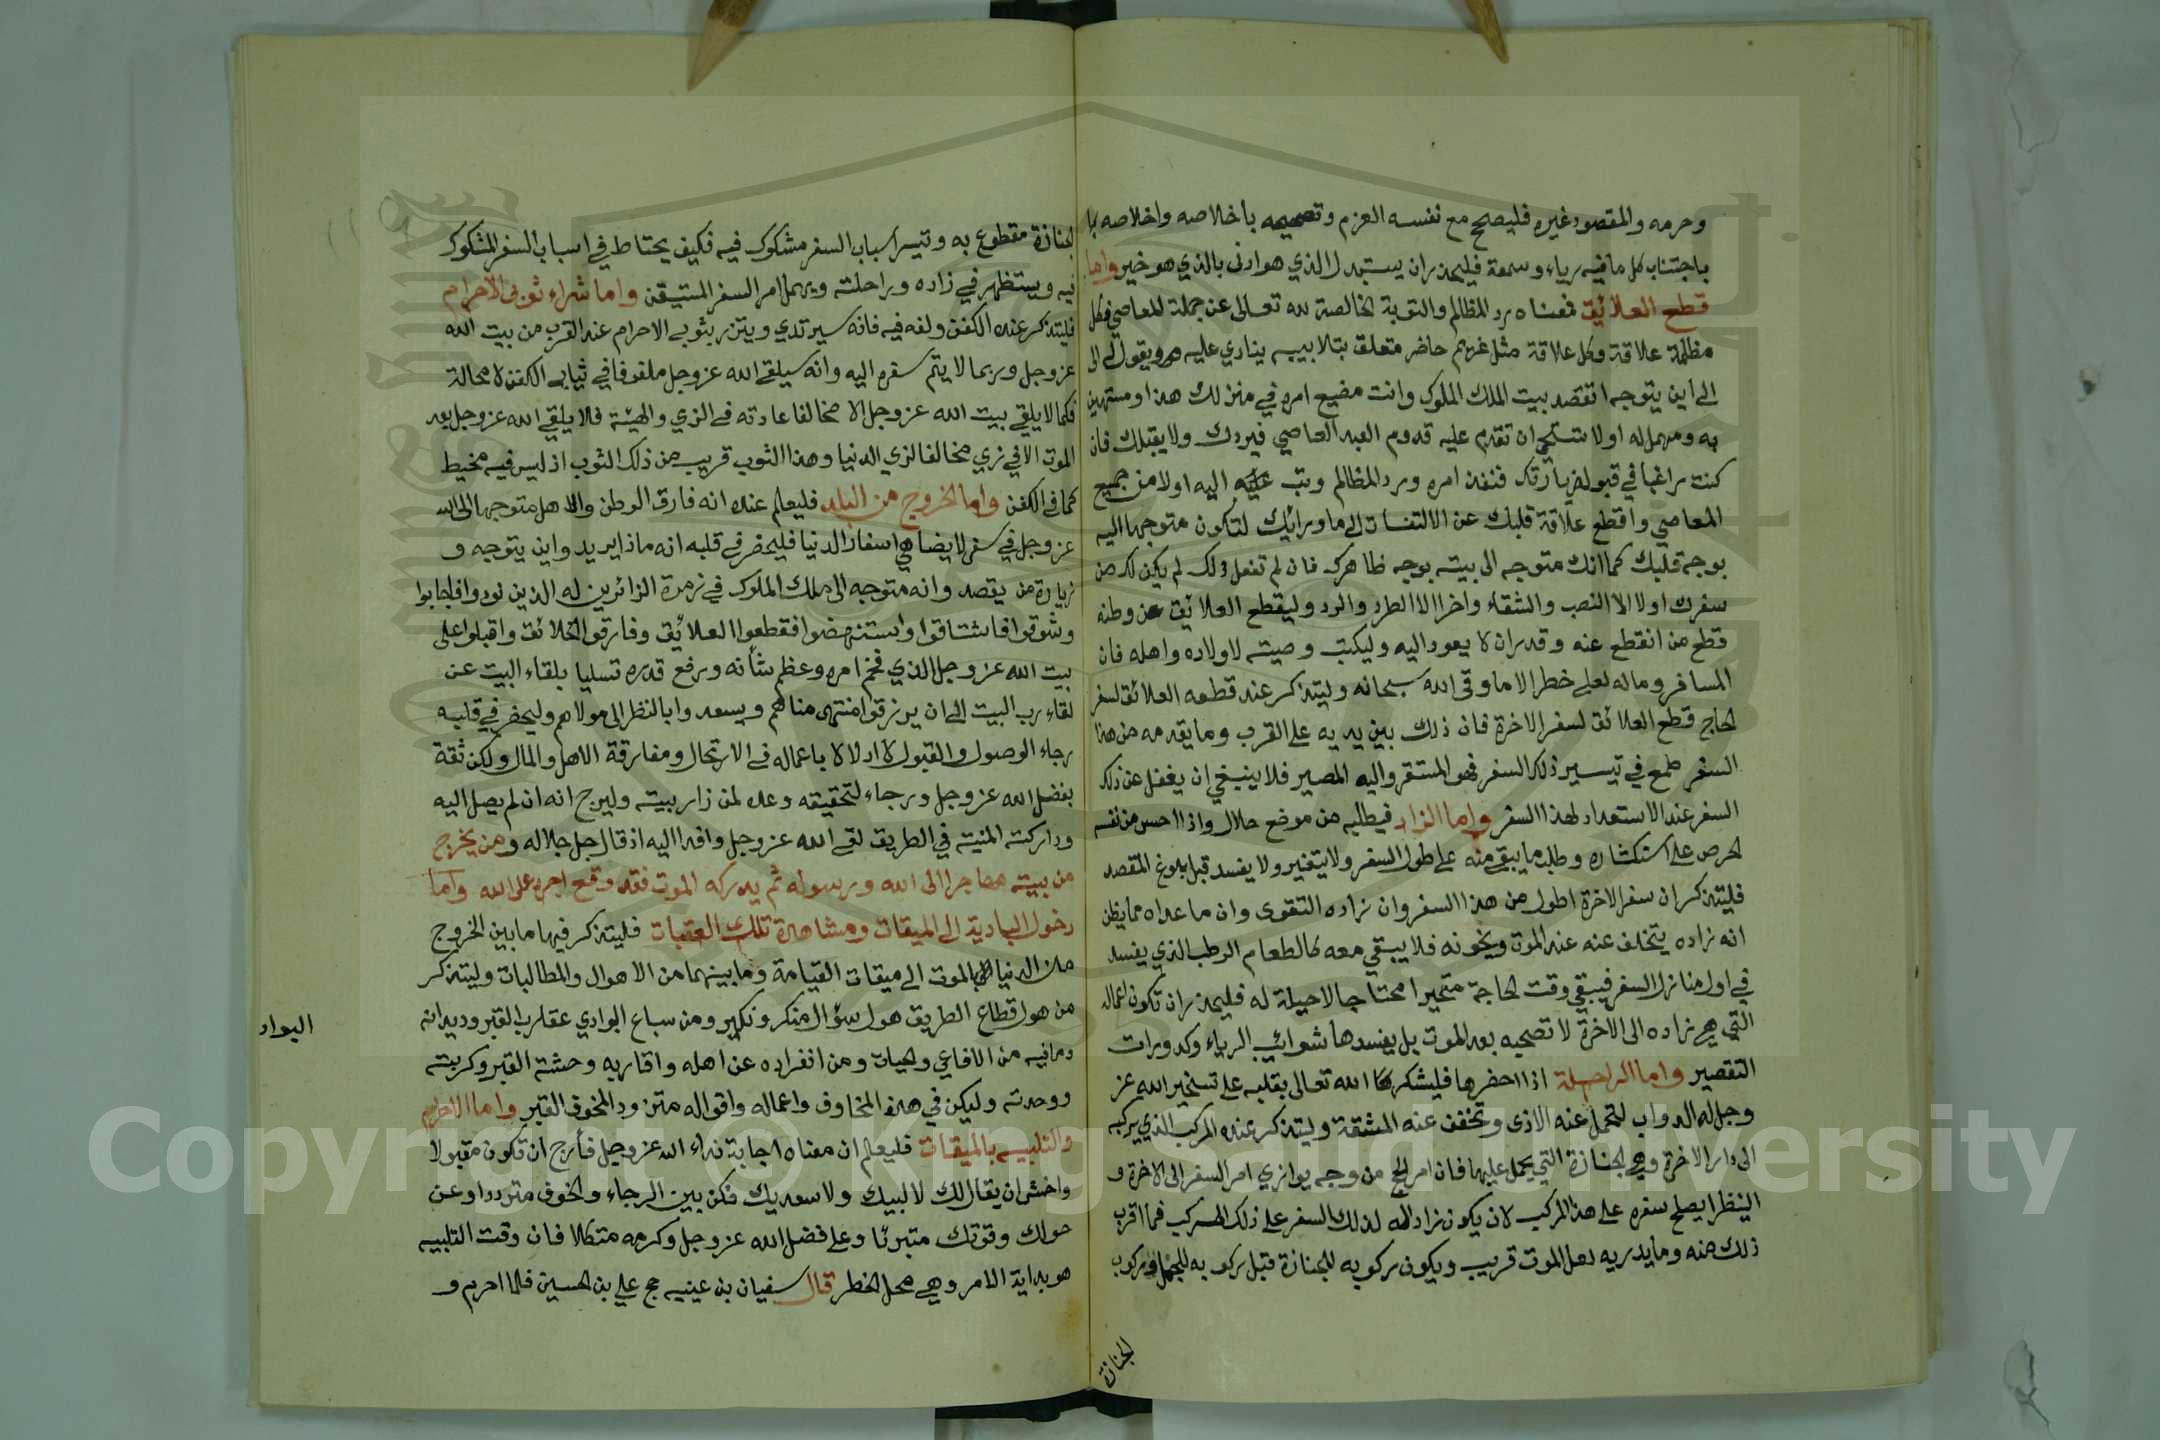 وحرمه والمقصود غيره فليصحح مع نفسه العزم وتصحيحه باخلاصه واخلاصه با
باجتناب كل ما فيه رياء وسمعة فليحذر ان يستبدل الذي هو ادنى بالذي هو خير واما
قطع العلائق فمعناه رد المظالم والتوبة الخالصة لله تعالى عن جملة المعاصي فكل
مظلمة علاقة وكل علاقة مثل غريم حاضر متعلق بتلابيبه ينادي عليه ويقول له الى
الى اين يتوجه اتقصد بيت الملك الملوك وانت مضيع امره في منزلك هذا ومستهين
به ومهمل له اولا تستحي ان تقدم عليه قدوم العبد العاصي فيردك ولا يقبلك فان
كنت راغبا في قبول زيارتك فنفذ امره ورد المظالم وتب اليه اولا من جميع
المعاصي واقطع علاقة قلبك عن الالتفات الى ما ورايك لتكون متوجها اليه
بوجه قلبك كما انك متوجه الى بيته بوجه ظاهرك فان لم تفعل ذلك لم يكن لك من
سفرك اولا الا النصب والشقاء واخرا الا الطرد والرد وليقطع العلائق عن وطنه
قطع من انقطع عنه وقدر ان لا يعود اليه وليكتب وصيته لاولاده واهله فان
المسافر وماله لعلى خطر الا ما وقى الله سبحانه وليتذكر عند قطعه العلائق لسفر
الحاج قطع العلائق لسفر الاخرة فان ذلك بين يديه على القرب وما يقدمه من هذا
السفر طمع في تيسير ذلك السفر فهو المستقر واليه المصير فلا ينبغي ان يغفل عن ذلك
السفر عند الاستعداد لهذا السفر واما الزاد فيطلبه من موضع حلال واذا احس من نفسه
الحرص على استكثاره وطلب ما يبقى منه على طول السفر ولا يتغير ولا يفسد قبل بلوغ المقصد
فليتذكر ان سفر الاخرة اطول من هذا السفر وان زاده التقوى وان ما عداه مما يظن
انه زاده يتخلف عنه عند الموت ويخونه فلا يبقى معه كالطعام الرطب الذي يفسد
في اول منازل السفر فيبقى وقت الحاجة متحيرا محتاجا لا حيلة له فليحذر ان تكون اعماله
التي هي زاده الى الاخرة لا تصحبه بعد الموت بل يفسدها شوائب الرياء وكدورات
التقصير واما الراحلة اذا احضرها فليشكر الله تعالى بقلبه على تسخير الله عز
وجل له الدواب لتحمل عنه الاذى وتخفف عنه المشقة وليتذكر عنده المركب الذي يركبه
الى دار الاخرة وهي الجنازة التي يحمل عليها فان امر الحج من وجه يوازي امر السفر الى الاخرة و
لينظر ايصلح سفره على هذا المركب لان يكون زادا له لذلك السفر على ذلك المركب فما اقرب
ذلك منه وما يدريه لعل الموت قريب ويكون ركوبه للجنازة قبل ركوبه للجمل وركوب
الجنازة
الجنازة مقطوع به وتيسر اسباب السفر مشكوك فيه فكيف يحتاط في اسباب السفر المشكوك
فيه ويستظهر في زاده وراحلته ويهمل امر السفر المستيقن واما شراء ثوبي الاحرام
فليتذكر عنده الكفن ولفه فيه فانه سيرتدي ويتزر بثوبي الاحرام عند القرب من بيت الله
عز وجل وربما لا يتم سفره اليه وانه سيلقى الله عز وجل ملفوفا في ثياب الكفن لا محالة
فكما لا يلقى بيت الله عز وجل الا مخالفا عادته في الزي والهيئة فلا يلقى الله عز وجل بعد
الموت الا في زي مخالفا لزي الدنيا وهذا الثوب قريب من ذلك الثوب اذ ليس فيه مخيط
كما في الكفن واما الخروج من البلد فليعلم عنده انه فارق الوطن والاهل متوجها الى الله
عز وجل في سفر لا يضاهي اسفار الدنيا فليحضر في قلبه انه ماذا يريد واين يتوجه و
زيارة من يقصد وانه متوجه الى ملك الملوك في زمرة الزائرين له الذين نودوا فاجابوا
وشوقوا فاشتاقوا واستنهضوا فقطعوا العلائق وفارقوا الخلائق واقبلوا على
بيت الله عز وجل الذي فخم امره وعظم شأنه ورفع قدره تسليا بلقاء البيت عن
لقاء رب البيت الى ان يرزقوا منتهى مناهم ويسعدوا بالنظر الى مولاهم وليحضر في قلبه
رجاء الوصول والقبول لا ادلالا باعماله في الارتحال ومفارقة الاهل والمال ولكن ثقة
بفضل الله عز وجل ورجاء لتحقيقه وعده لمن زار بيته وليرج انه ان لم يصل اليه
وداركته المنية في الطريق لقى الله عز وجل وافدا اليه اذ قال جل جلاله ومن يخرج
من بيته مهاجرا الى الله ورسوله ثم يدركه الموت فقد وقع اجره على الله واما
دخول البادية الى الميقات ومشاهدة تلك العقبات فليتذكر فيها ما بين الخروج
من الدنيا بالموت الى ميقات القيامة وما بينهما من الاهوال والمطالبات وليتذكر
من هول قطاع الطريق هول سؤال منكر ونكير ومن سباع البوادي عقارب القبر وديدانه
البواد
وما فيه من الافاعي والحيات ومن انفراده عن اهله واقاربه وحشة القبر وكربته
ووحدته وليكن في هذه المخاوف واعماله واقواله متزودا لمخوف القبر واما الاحرام
والتلبيه بالميقات فليعلم ان معناه اجابة نداء الله عز وجل فأرج ان تكون مقبولا
واخش ان يقال لك لا لبيك ولا سعديك فكن بين الرجاء والخوف مترددا وعن
حولك وقوتك متبرئا وعلى فضل الله عز وجل وكرمه متكالا فان وقت التلبيه
هو بداية الامر وهي محل الخطر قال سفيان بن عينيه حج علي بن الحسين فلما احرم و
Copyright © King Saud University